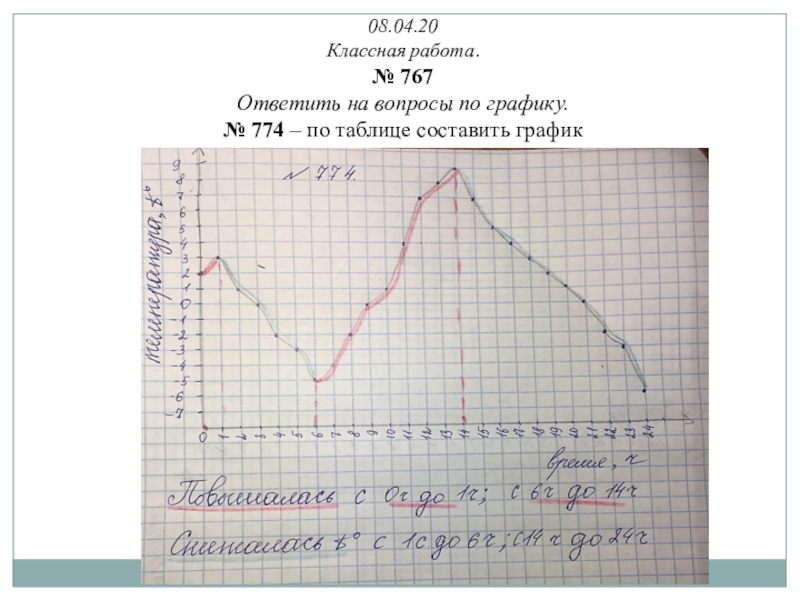 08.04.20
Классная работа.
№ 767
Ответить на вопросы по графику.
№ 774 – по таблице составить график
№ 774.
температура, t°
9
8
7
6
5
4
3
2
1
0
-1
-2
-3
-4
-5
-6
-7
0 1 2 3 4 5 6 7 8 9 10 11 12 13 14 15 16 17 18 19 20 21 22 23 24
время, ч
Повышалась с 0ч до 1ч; с 6ч до 14ч
Снижалась t° с 1с до 6ч; с 14ч до 24ч